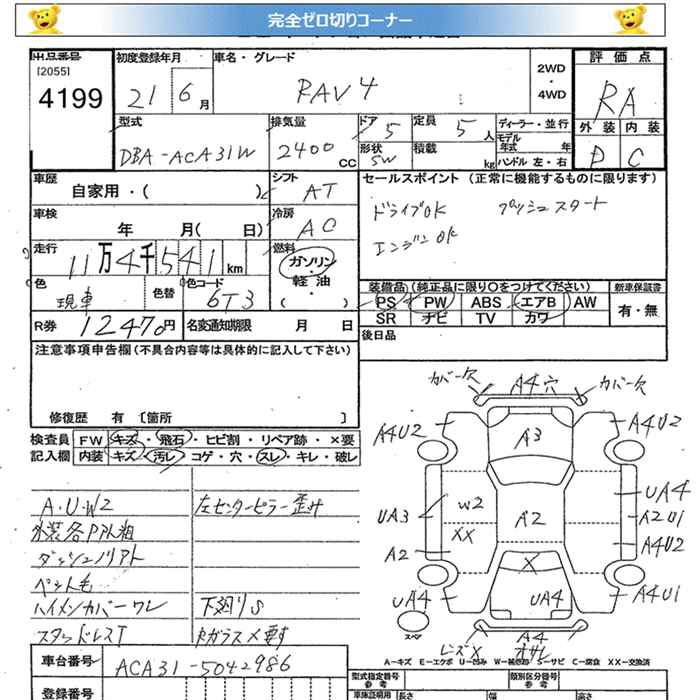 完全ゼロ切りコーナー
出品番号 初度登録年月 車名・グレード 2WD・4WD 評価点
[2055]
4199 21 6月 RAV4 RA
型式 排気量 ドア 5 定員 5人 ディーラー・並行 外装 内装
DBA-ACA31W 2400CC 形状 SW 積載 kg モデル年式 年 ハンドル 左・右 D C
車歴 自家用・( ) シフト AT セールスポイント (正常に機能するものに限ります)
車検 年 月( 日) 冷房 AC ドライブOK プッシュスタート
エンジンOK
走行 11万4千541km 燃料 ガソリン・軽油・( )
色 現車 色替 色コード 6T3 装備品 (純正品に限り○をつけてください) 新車保証書
PS PW ABS エアB AW 有・無
SR ナビ TV カワ
R券 12470円 名変通知期限 月 日 後日品
注意事項申告欄 (不具合内容等は具体的に記入して下さい)
修復歴 有 [箇所 ]
検査員 FW キズ・飛石・ヒビ割・リペア跡・×要
記入欄 内装 キズ・汚レ・コゲ・穴・スレ・キレ・破レ
A・U・W2 左センターピラー歪み
外装各
ダッシュノリアト
ペット毛
ハイメンカバーワレ 下廻りS
スタッドレスT
車台番号 ACA31-5042986
登録番号
カバー欠 A4穴 カバー欠
A4U2 A3 A4U2
UA3 W2 A2 UA4
XX A2U1
A2 A4U2
X
UA4 UA4 A4U1
スペア レンズX A4
A-キズ E-エクボ U-凹み W-補修跡 S-サビ C-腐食 XX-交換済
型式指定番号 参考 類別区分番号 参考
車検証明用 長さ 幅 高さ